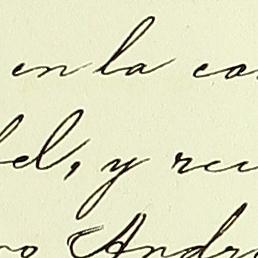 en la ca
bel, y reu
o Andr